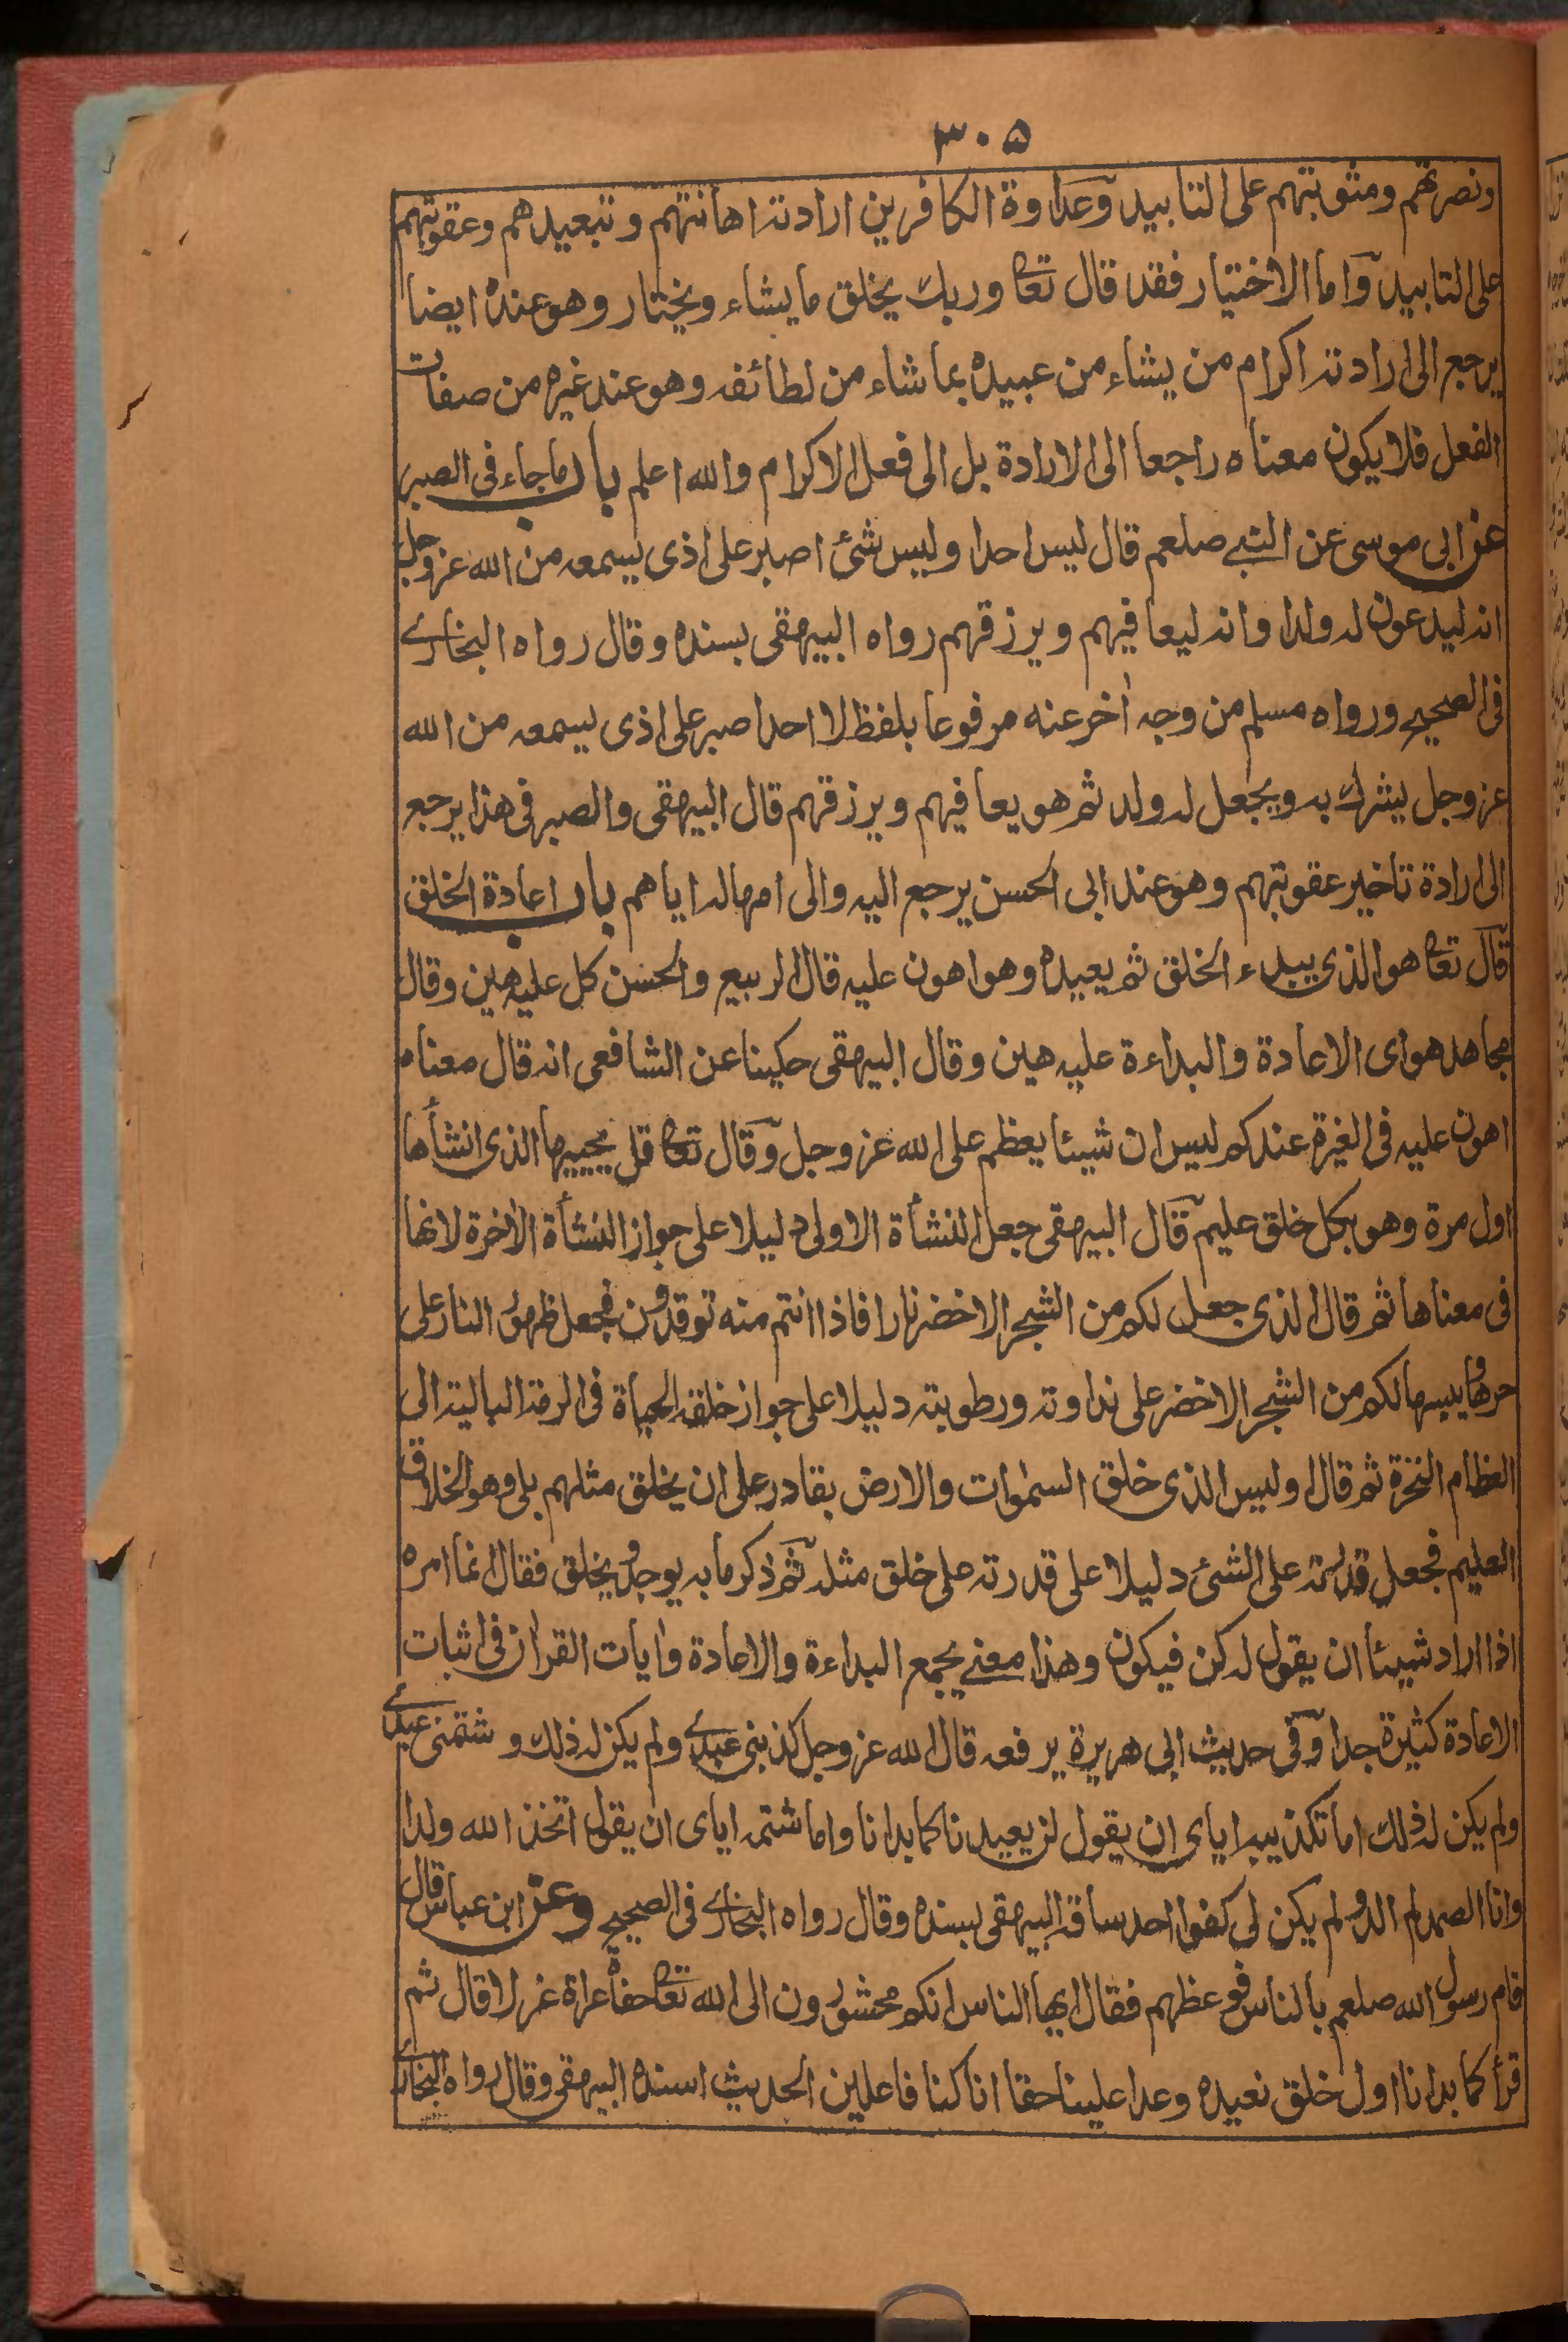 ٣٠٥
ونصرتهم ومثوبتهم على التابيد وعداوة الكافرين ارادته اهانتهم وتبعيدهم وعقوبتهم
على التابيد واما الاختيار فقد قال تعا وربك يخلق ما يشاء ويختار وهو عنده ايضا
يرجع الى ارادته اكرام من يشاء من عبيده بما شاء من لطائفه وهو عند غيره من صفات
الفعل فلا يكون معناه راجعا الى الارادة بل الى فعل الاكرام والله اعلم باب ما جاء فى الصبر
عن ابى موسى عن النبي صلعم قال ليس احدا وليس شئ اصبر على اذى يسمعه من الله عزوجل
انه ليدعون له ولدا وانه ليعافيهم ويرزقهم رواه البيهقى بسنده وقال رواه البخاري
فى الصحيح ورواه مسلم من وجه أخر عنه مرفوعا بلفظ لا احد اصبر على اذى يسمعه من الله
عزوجل يشرك به ويجعل له ولد ثم هو يعافيهم ويرزقهم قال البيهقى والصبر فى هذا يرجع
الى ارادة تاخير عقوبتهم وهو عند ابى الحسن يرجع اليه والى امهاله اياهم باب اعادة الخلق
قال تعا هو الذى يبدء الخلق ثم يعيده وهو اهون عليه قال الربيع والحسن كل عليه هين وقال
مجاهد هو اى الاعادة والبداءة عليه هين وقال البيهقى حكينا عن الشافعى انه قال معناه
اهون عليه فى الغبرة عندكم ليس ان شيئا يعظم على الله عزوجل وقال تعا قل يحييها الذى انشأها
اول مرة وهو بكل خلق عليم قال البيهقى جعل النشأة الاولى دليلا على جواز النشأة الأخرة لانها
فى معناها ثم قال الذى جعل لكم من الشجر الاخضر نارا فاذا انتم منه توقدون فجعل ظهور النار على
حرها ويبسها لكم من الشجر الاخضر على نداوته ورطوبته دليلا على جواز خلقه الحياة فى الرمة البالية الى
العظام النخرة ثم قال اوليس الذى خلق السموات والارض بقادر على ان يخلق مثلهم بلى وهو الخلاق
العليم فجعل قدرته على الشئ دليلا على قدرته على خلق مثله ثم ذكر ما به يوجد ويخلق فقال انما امره
اذا اراد شيئا ان يقول له كن فيكون وهذا معني يجمع البداءة والاعادة وأيات القرأن فى اثبات
الاعادة كثيرة جدا وفى حديث ابى هريرة يرفعه قال الله عزوجل كذبنى عبدي ولم يكن له ذلك وشتمنى عبدي
ولم يكن له ذلك اما تكذيبه اياى ان يقول لن يعيدنا كما بدانا واما شتمه اياى ان يقول اتخذ الله ولدا
وانا الصمد لم الد ولم يكن لى كفوا احد ساقه البيهقى بسنده وقال رواه البخاري فى الصحيح وعن ابن عباس قال
قام رسول الله صلعم بالناس فوعظهم فقال ايها الناس انكم محشورون الى الله تعا حفاة عراة غرلا قال ثم
قرأ كما بدانا اول خلق نعيده وعدا علينا حقا انا كنا فاعلين الحديث اسنده البيهقى وقال رواه البخاري